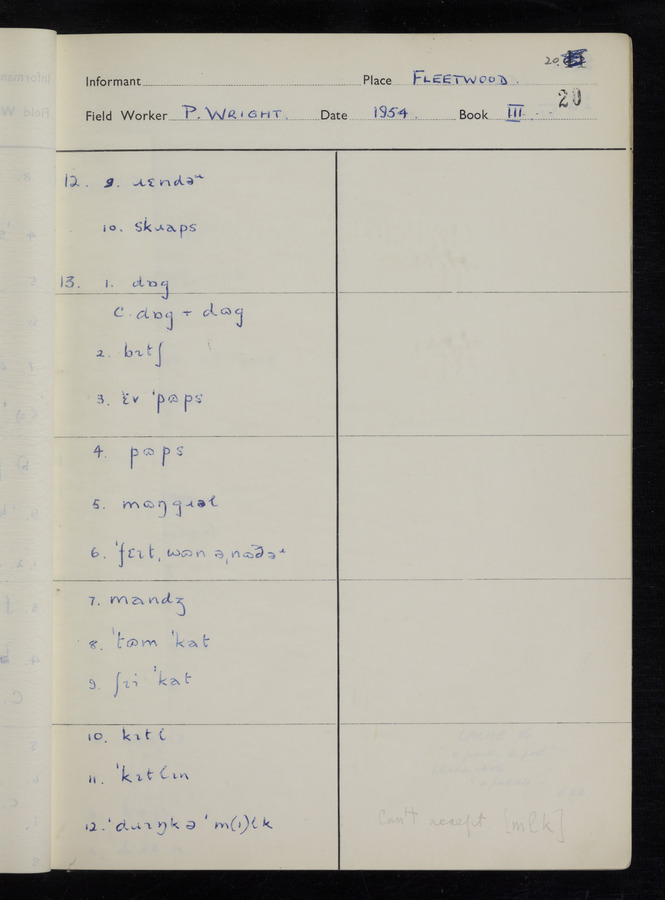 20.
Informant Place FLEETWOOD.
20
Field Worker P. WRIGHT. Date 1954. Book III
12. 9. ɹɛndəɹ
10. skɹaps
13. 1. dɒg
C. dɒg + dɷg
2. bɪtʃ
3. ɛv ˈpɷps
4. pɷps
5. mɷŋgɹəl
6. ˈfɛɪt ˌwɷn əˌnɷðəɹ
7. mandʒ
8. ˈtɷm ˈkat
9. ʃɪi ˈkat
10. kɪtl
11. ˈkɪtlɪn
12. ˈdɹɪŋk ə ˈm(ɪ)lk
Can't accept [mlk]